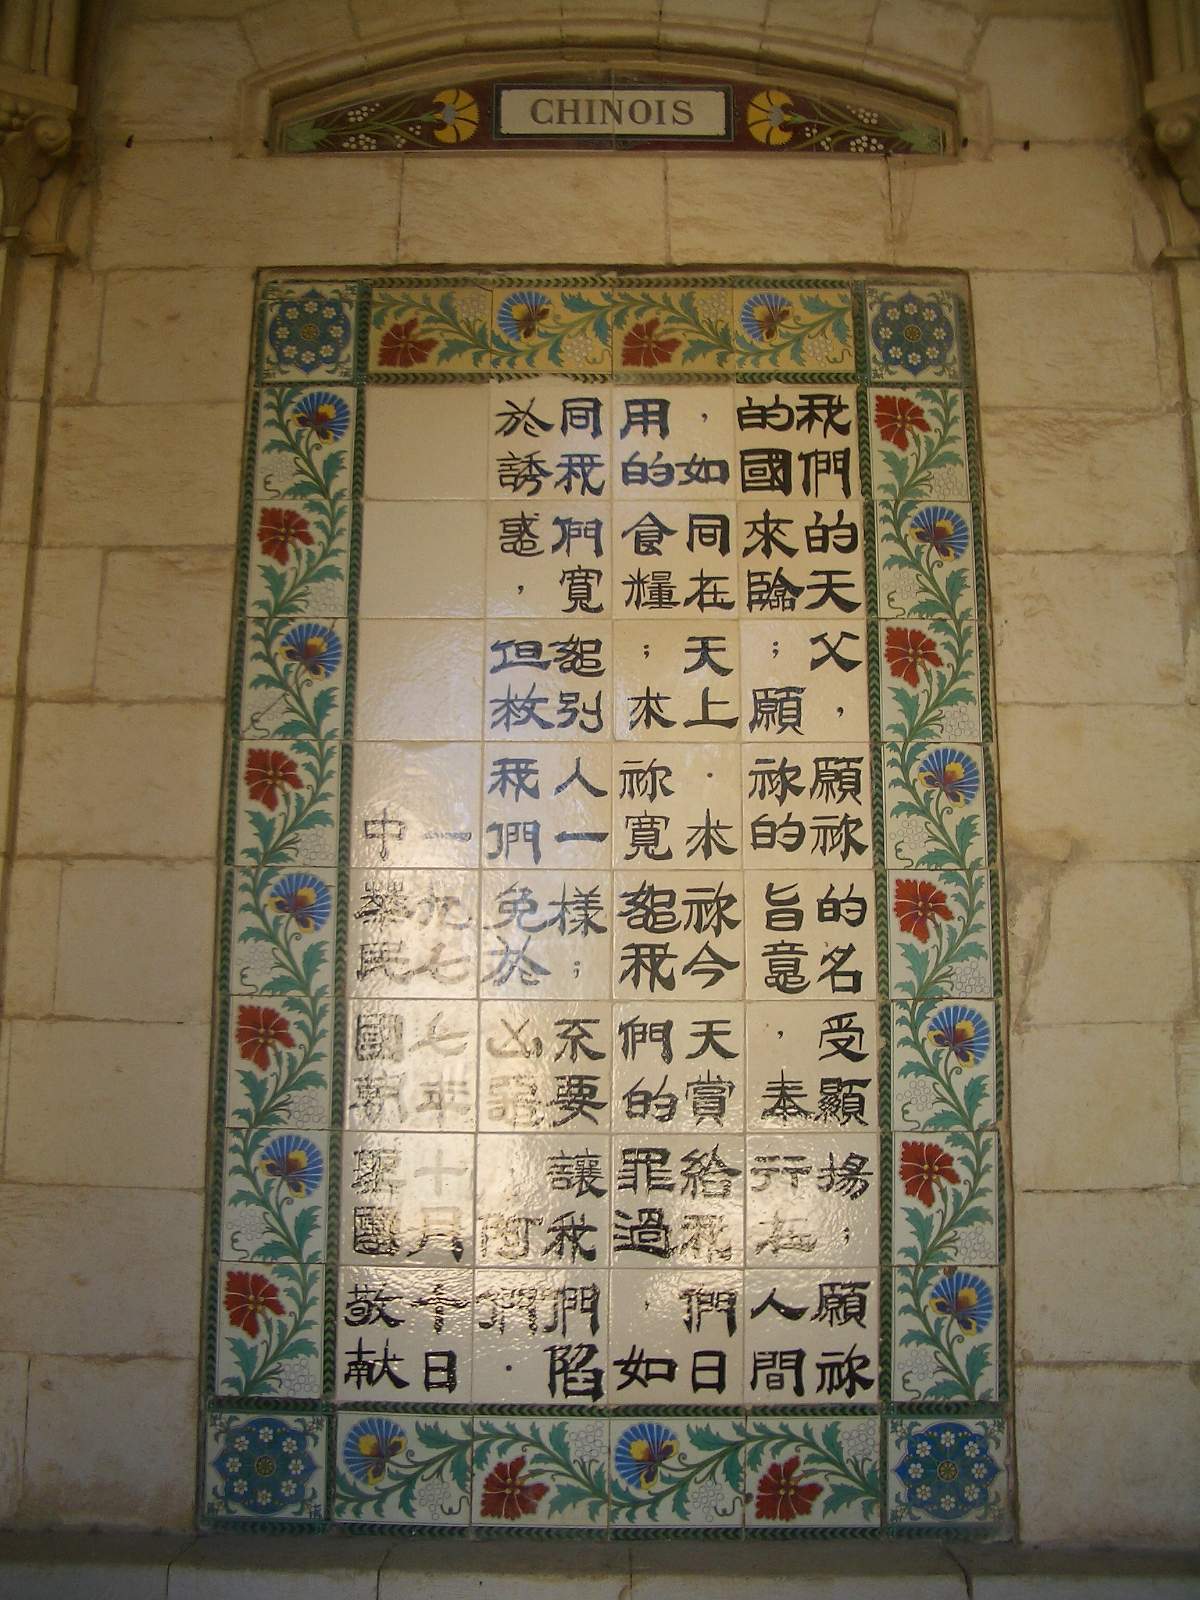 CHINOIS
我們的天父，願祢的名受顯揚；願祢
的國來臨；願祢的旨意，奉行在人間
，如同在天上．求祢今天賞給我們日
用的食糧；求祢寬恕我們的罪過，如
同我們寬恕別人一樣；不要讓我們陷
於誘惑，但救我們免於凶惡，阿們．
一九七七年十月十日
中華民國朝聖團敬献